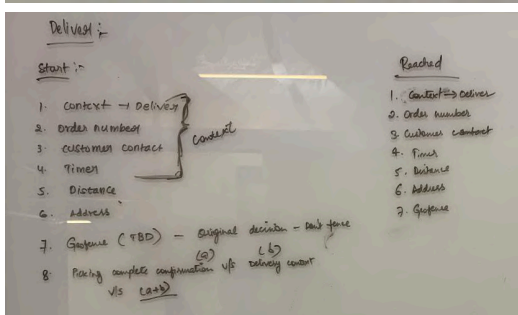 Deliver :-
Start :-
1. Context → Delivery
2. Order number
3. Customer contact
4. Timer
5. Distance
6. Address
Context
7. Geofence (TBD) - Original decision - Don't fence
8. Picking complete confirmation (a) v/s Delivery context (b)
v/s (a+b)
Reached
1. Context → Deliver
2. Order number
3. Customer contact
4. Timer
5. Distance
6. Address
7. Geofence